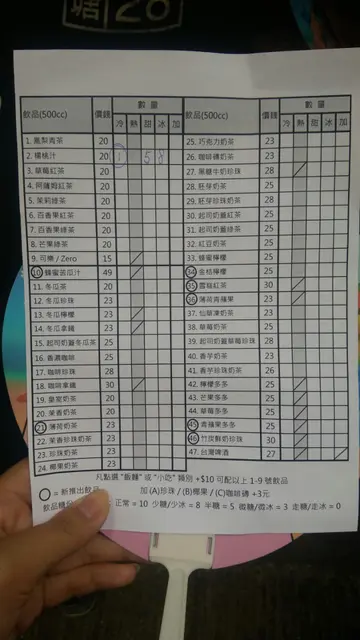 飲品(500cc) 價錢 數量 冷 熱 甜 冰 加
1. 鳳梨青茶 20
2. 楊桃汁 20 1 5 8
3. 草莓紅茶 20
4. 阿薩姆紅茶 20
5. 茉莉綠茶 20
6. 百香果紅茶 20
7. 百香果綠茶 20
8. 芒果綠茶 20
9. 可樂 / Zero 15
10 蜂蜜苦瓜汁 49
11. 冬瓜茶 20
12. 冬瓜珍珠 23
13. 冬瓜檸檬 23
14. 冬瓜拿鐵 23
15. 起司奶蓋冬瓜茶 25
16. 香濃咖啡 25
17. 咖啡珍珠 28
18. 咖啡拿鐵 30
19. 皇室奶茶 20
20. 茉香奶茶 20
21 薄荷奶茶 23
22. 茉香珍珠奶茶 23
23. 珍珠奶茶 23
24. 椰果奶茶 23
飲品(500cc) 價錢 數量 冷 熱 甜 冰 加
25. 巧克力奶茶 23
26. 咖啡磚奶茶 23
27. 黑糖牛奶珍珠 28
28. 胚芽奶茶 25
29. 胚芽珍珠奶茶 28
30. 起司奶蓋紅茶 25
31. 起司奶蓋綠茶 25
32. 紅豆奶茶 25
33. 蜂蜜檸檬 25
34 金桔檸檬 25
35 雪梨紅茶 30
36 薄荷青蘋果 23
37. 仙草凍奶茶 23
38. 草莓奶茶 25
39. 起司奶蓋草莓珍珠 28
40. 香芋奶茶 23
41. 香芋珍珠奶茶 26
42. 檸檬多多 25
43. 芒果多多 25
44. 草莓多多 25
45 青蘋果多多 25
46 竹炭鮮奶珍珠 30
47. 台灣啤酒 27
凡點選 "飯麵" 或 "小吃" 類別 +$10 可配以上 1-9 號飲品
= 新推出飲品 加 (A)珍珠 / (B)椰果 / (C)咖啡磚 +3元
飲品糖分 正常 = 10 少糖/少冰 = 8 半糖 = 5 微糖/微冰 = 3 走糖/走冰 = 0